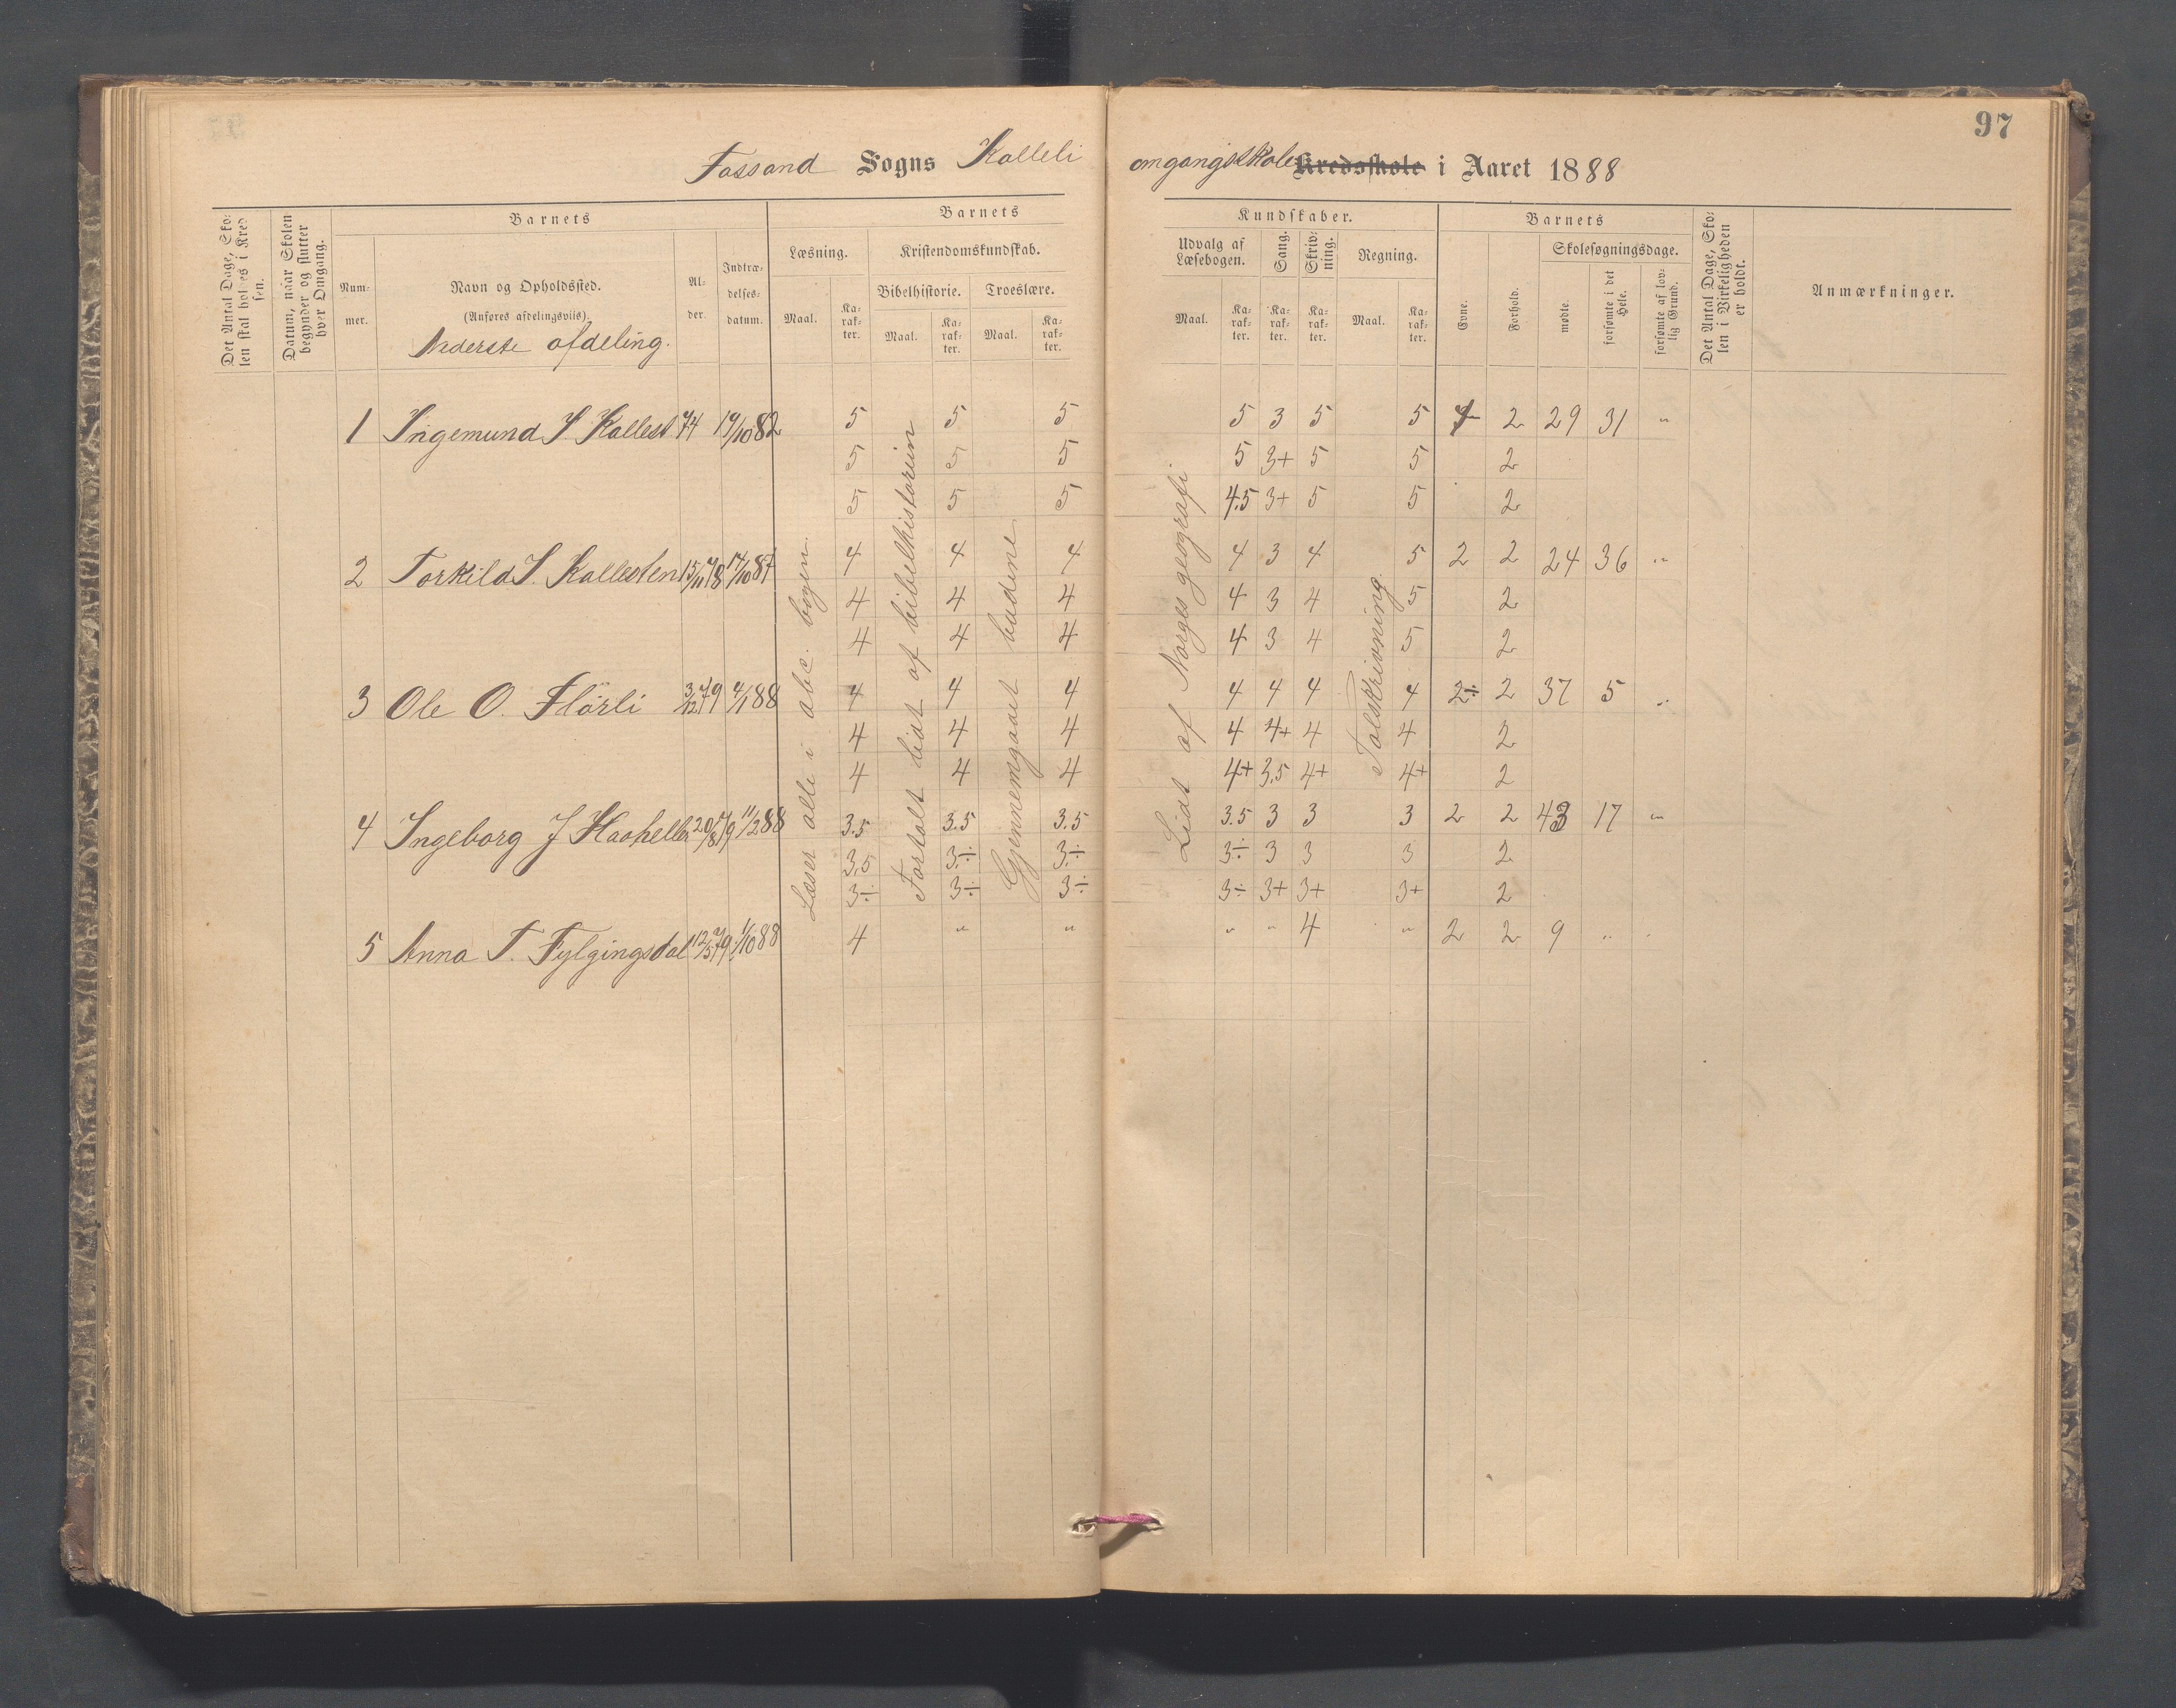 97
Fossand Sogns Kalleli omgangsskole Kredsskole i Aaret 1888
Det Antal Dage, Skolen skal holdes i Kredsen.
Datum, naar Skolen begynder og slutter hver Omgang.
Barnets
Nummer.
Navn og Opholdssted.
(Anføres afdelingsviis).
Nederste afdeling.
Alder.
Indtrædelsesdatum.
Barnets
Læsning.
Maal.
Karakter.
Kristendomskundskab.
Bibelhistorie.
Maal.
Karakter.
Troeslære.
Maal.
Karakter.
Kundskaber.
Udvalg af Læsebogen.
Maal.
Karakter.
Sang.
Karakter.
Skrivning.
Karakter.
Regning.
Maal.
Karakter.
Barnets
Evne.
Forhold.
Skolesøgningsdage.
mødte.
forsømte i det Hele.
forsømte af lovlig Grund.
Det Antal Dage, Skolen i Virkeligheden er holdt.
Anmærkninger.
Læser alle i abc. bogen.
Fortalt lidt af bibelhistorien
Gjennemgaaet budene
Lidt af Norges geografi
Talskrivning
1 Ingemund S. Kallest 74 19/10 82 5 5 5 5 3 5 5 4 2 29 31 "
5 5 5 5 3+ 5 5 2
5 5 5 4.5 3+ 5 5 2
2 Torkild S. Kallesten 15/11 78 17/10 87 4 4 4 4 3 4 5 2 2 24 36 "
4 4 4 4 3 4 5 2
4 4 4 4 3 4 5 2
3 Ole O. Flörli 3/12 79 4/1 88 4 4 4 4 4 4 4 2÷ 2 37 5 "
4 4 4 4 4+ 4 4 2
4 4 4 4+ 3.5 4+ 4+ 2
4 Ingeborg J Haaheller 20/8 79 11/2 88 3.5 3.5 3.5 3.5 3 3 3 2 2 43 17 "
3.5 3÷ 3÷ 3÷ 3 3 3 2
3÷ 3÷ 3÷ 3÷ 3+ 3+ 3+ 2
5 Anna T. Fylgingsdal 12/5 79 1/10 88 4 " " " " 4 " 2 2 9 "